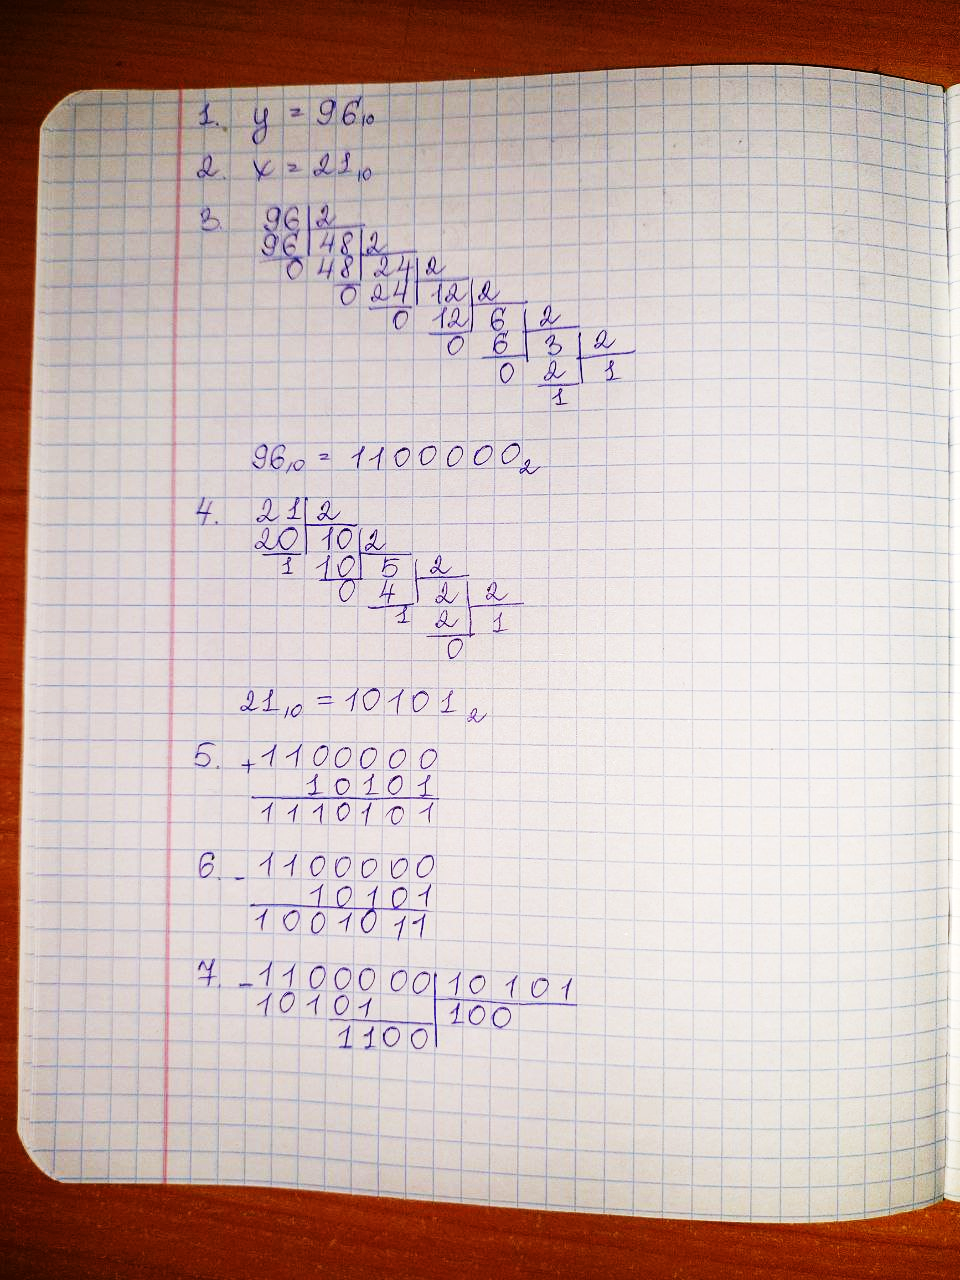 1. y = 96₁₀
2. x = 21₁₀
3. 96 2
96 48 2
0 48 24 2
0 24 12 2
0 12 6 2
0 6 3 2
0 2 1
1
96₁₀ = 1100000₂
4. 21 2
20 10 2
1 10 5 2
0 4 2 2
1 2 1
0
21₁₀ = 10101₂
5. + 1100000
10101
1110101
6. - 1100000
10101
1001011
7. - 1100000 10101
10101 100
1100